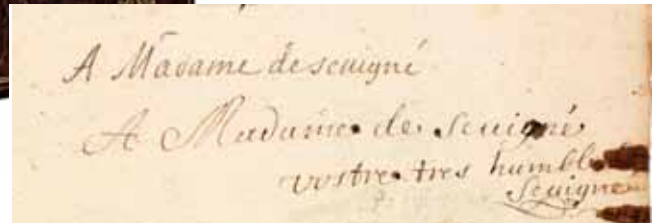 A Madame de sevigné
A Madame de Sevigné
vostre tres humble
Sevigne